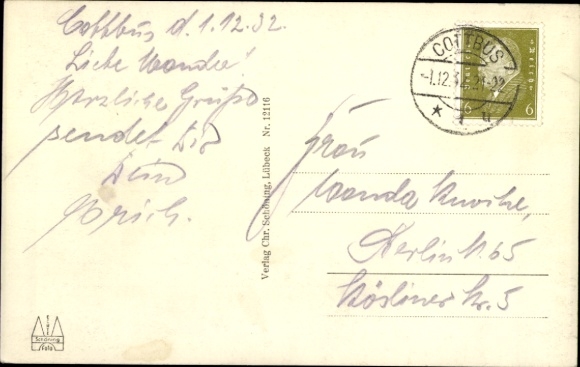 Cottbus d. 1.12.32.
Liebe Wanda!
Herzliche Grüße
sendet Dir
Dein
Erich.
Verlag Chr. Schöning, Lübeck Nr. 12116
Schöning
Foto
COTTBUS 1
-1.12.32.
6 6
Frau
Wanda
Berlin N. 65
Kösliner Str. 5